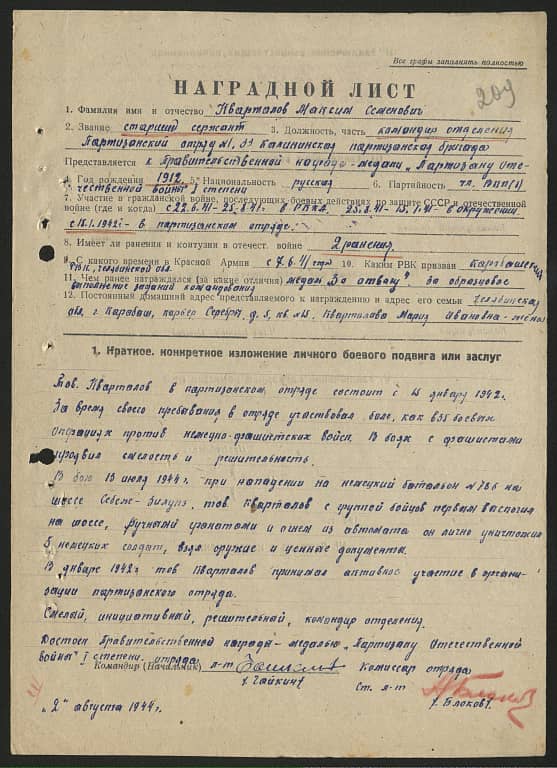 Все графы заполнять полностью
НАГРАДНОЙ ЛИСТ
209
1. Фамилия имя и отчество Кварталов Максим Семенович
2. Звание старший сержант 3. Должность, часть командир отделения
Партизанский отряд №1, 3й Калининская партизанская бригада
Представляется к Правительственной награде - медали „Партизану Оте-
4. Год рождения 1912 5. Национальность русский 6. Партийность чл. ВКП(б)
чественной войны" I степени
7. Участие в гражданской войне, последующих боевых действиях по защите СССР и отечественной
войне (где и когда) с 22.6.41-25.8.41г. в РККА, 25.8.41- в окружении
с 15.1.1942г- в партизанском отряде.
8. Имеет ли ранения и контузии в отечест. войне 2 ранения
9. С какого времени в Красной Армии с 10. Каким РВК призван Карабашский
РВК, Челябинской обл.
11. Чем ранее награждался (за какие отличия) медаль „За отвагу" за образцовое
выполнение заданий командования
12. Постоянный домашний адрес представляемого к награждению и адрес его семьи Челябинская
обл, г. Карабаш, д. 5, кв №15, Кварталова Мария Ивановна - жена
1. Краткое, конкретное изложение личного боевого подвига или заслуг
Тов. Кварталов в партизанском отряде состоит с 15 январу 1942.
За время своего пребывания в отряде участвовал боле, как в 35 боевых
операциях против немецко-фашистских войск. В боях с фашистами
проявил смелость и решительность.
В бою 13 июля 1944г. при нападении на немецкий батальон №786 на
шоссе Себеж-Зилупе, тов Кварталов с группой бойцов первым вскочил
на шоссе, ручными гранатами и огнем из автомата он лично уничтожил
5 немецких солдат, взял оружие и ценные документы.
В январе 1942г тов Кварталов принимал активное участие в органи-
зации партизанского отряда.
Смелый, инициативный, решительный, командир отделения.
Достоен Правительственной награды - медалью „Партизану Отечественной
войны" I степени.
Командир (Начальник) отряда л-т Комиссар отряда
/ Чайкин / Ст. л-т
/ Блохов /
„2" августа 1944г.